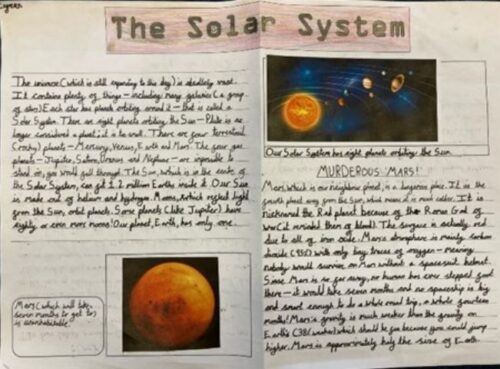 The Solar System
The universe (which is still expanding to this day) is absolutely vast.
It contains plenty of things - including many galaxies (a group
of stars). Each star has planets orbiting around it - that is called a
Solar System. There are eight planets orbiting the Sun - Pluto is no
longer considered a planet; it is too small. There are four terrestrial
(rocky) planets - Mercury, Venus, Earth and Mars. The four gas
planets - Jupiter, Saturn, Uranus and Neptune - are impossible to
stand on; you would fall through. The Sun, which is in the centre of
the Solar System, can fit 1.2 million Earths inside it. Our Sun
is made out of helium and hydrogen. Moons, which reflect light
from the Sun, orbit planets. Some planets (like Jupiter) have
eighty or even more moons! Our planet, Earth, has only one.
Mars (which will take
seven months to get to)
is uninhabitable.
Our Solar System has eight planets orbiting the Sun.
MURDEROUS MARS!
Mars, which is our neighbour planet, is a dangerous place. It is the
fourth planet away from the Sun, which means it is much colder. It is
nicknamed the Red planet because of the Roman God of
war (it reminded them of blood). The surface is actually red
due to all of iron oxide. Mars's atmosphere is mainly carbon
dioxide (95%) with only tiny traces of oxygen - meaning
nobody would survive on Mars without a spacesuit helmet.
Since Mars is so far away, no human has ever stepped foot
there - it would take seven months and no spaceship is big
and smart enough to do a whole round trip, a whole fourteen
months! Mars's gravity is much weaker than the gravity on
Earth's (38% weaker) which should be fun because you could jump
higher. Mars is approximately half the size of Earth.